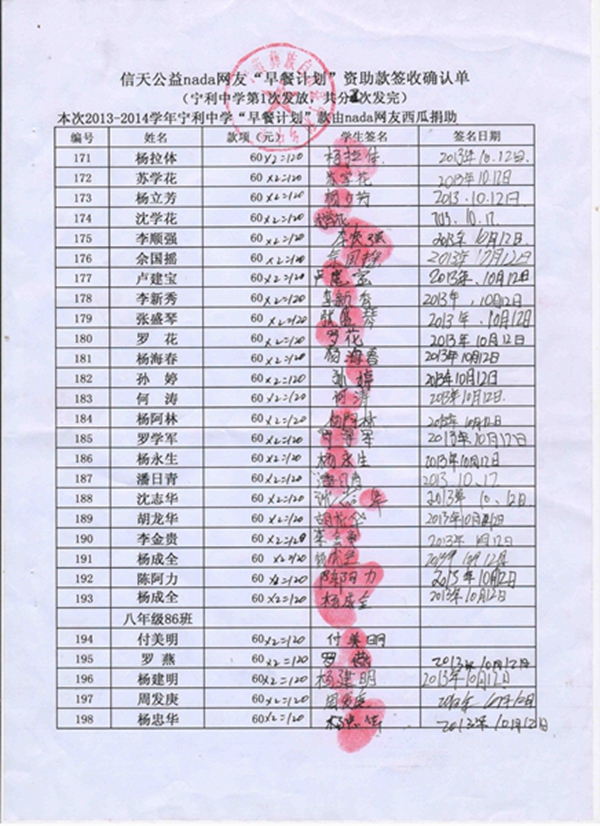 信天公益nada网友“早餐计划”资助款签收确认单
（宁利中学第1次发放，共分次发完）
本次2013-2014学年宁利中学“早餐计划”款由nada网友西瓜捐助
编号 姓名 款项（元） 学生签名 签名日期
171 杨拉体 60×2=120 杨拉体 2013年10.12日
172 苏学花 60×2=120 苏学花 2013年10.12日
173 杨立芳 60×2=120 杨立芳 2013.10.12日
174 沈学花 60×2=120
175 李顺强 60×2=120 李顺强 2013年10月12日
176 余国摇 60×2=120 2013年10月12日
177 卢建宝 60×2=120 卢建宝 2013年10月12日
178 李新秀 60×2=120 李新秀 2013年10月12日
179 张盛琴 60×2=120 张盛琴 2013年10月12日
180 罗花 60×2=120 罗花 2013年10月12日
181 杨海春 60×2=120 杨海春 2013年10月12日
182 孙婷 60×2=120 孙婷 2013年10月12日
183 何涛 60×2=120 何涛 2013年10月12日
184 杨阿林 60×2=120 杨阿林 2013年10月12日
185 罗学军 60×2=120 罗学军 2013年10月12日
186 杨永生 60×2=120 杨永生 2013年10月12日
187 潘日青 60×2=120 潘日青
188 沈志华 60×2=120 2013年10.12日
189 胡龙华 60×2=120 胡龙华 2013年10月12日
190 李金贵 60×2=120 2013年10月12日
191 杨成全 60×2=120 杨成全
192 陈阿力 60×2=120 陈阿力 2013年10月12日
193 杨成全 60×2=120 杨成全 2013年10月12日
八年级86班
194 付美明 60×2=120 付美明
195 罗燕 60×2=120 罗燕 2013年10月12日
196 杨建明 60×2=120 杨建明 2013年10月12日
197 周发庚 60×2=120
198 杨忠华 60×2=120 杨忠华 2013年10月12日